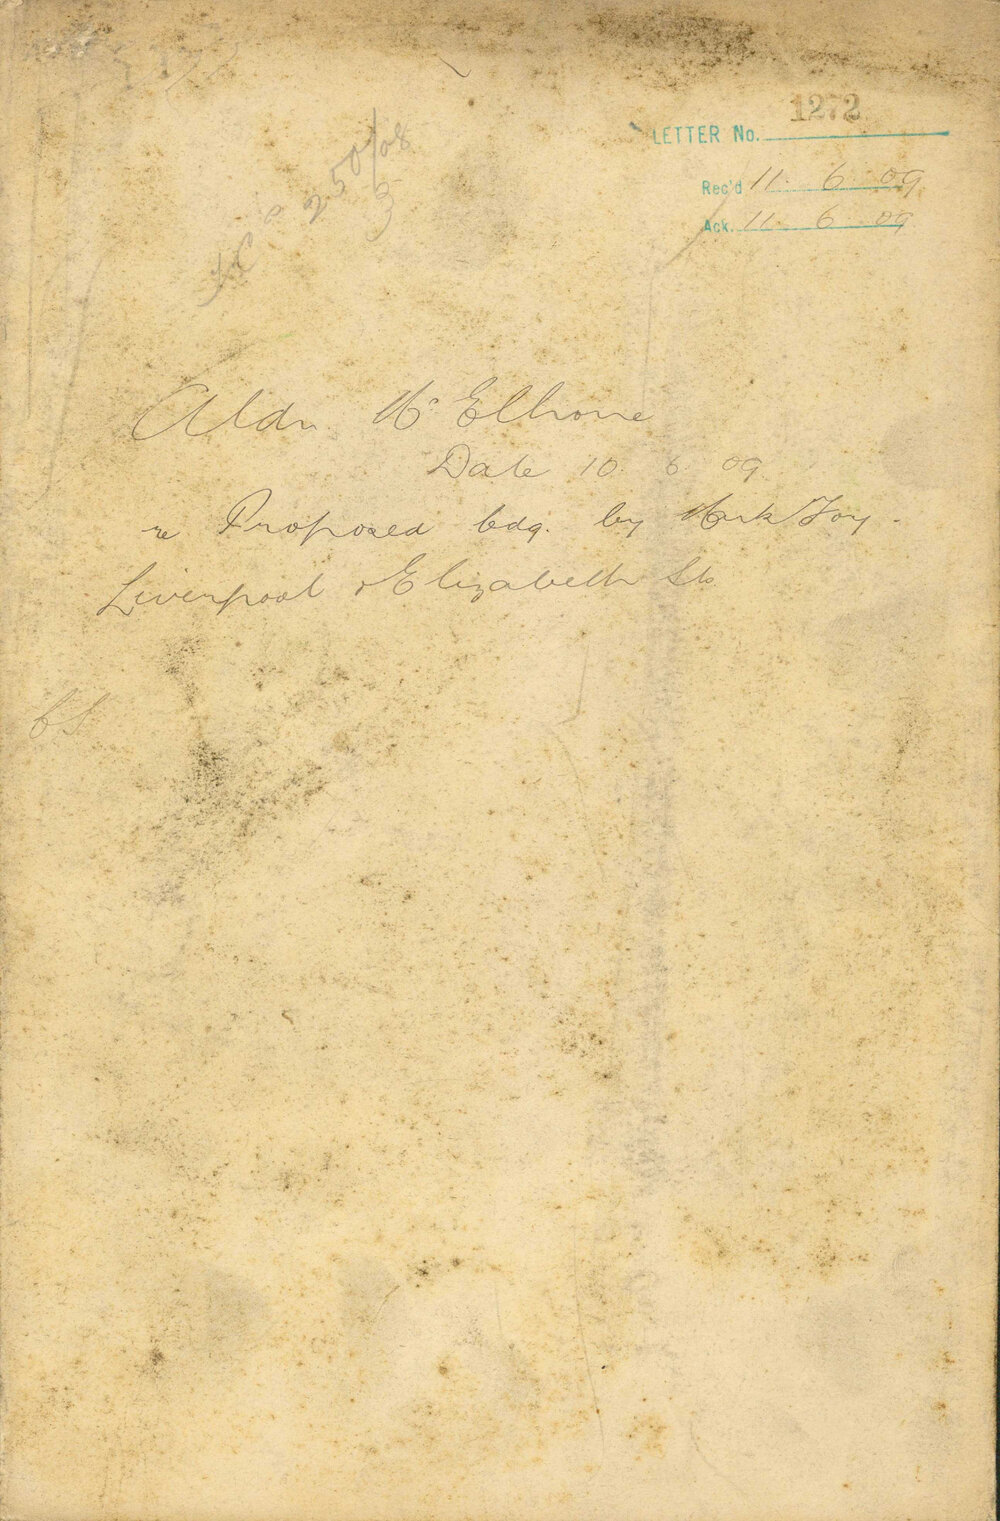 1272
LETTER No.
Rec'd 11. 6 09
Ack. 11. 6 09
250/08
3
Aldn. McElhone
Date 10. 6 09.
re Proposed bdg. by Mark Foy.
Liverpool & Elizabeth Sts